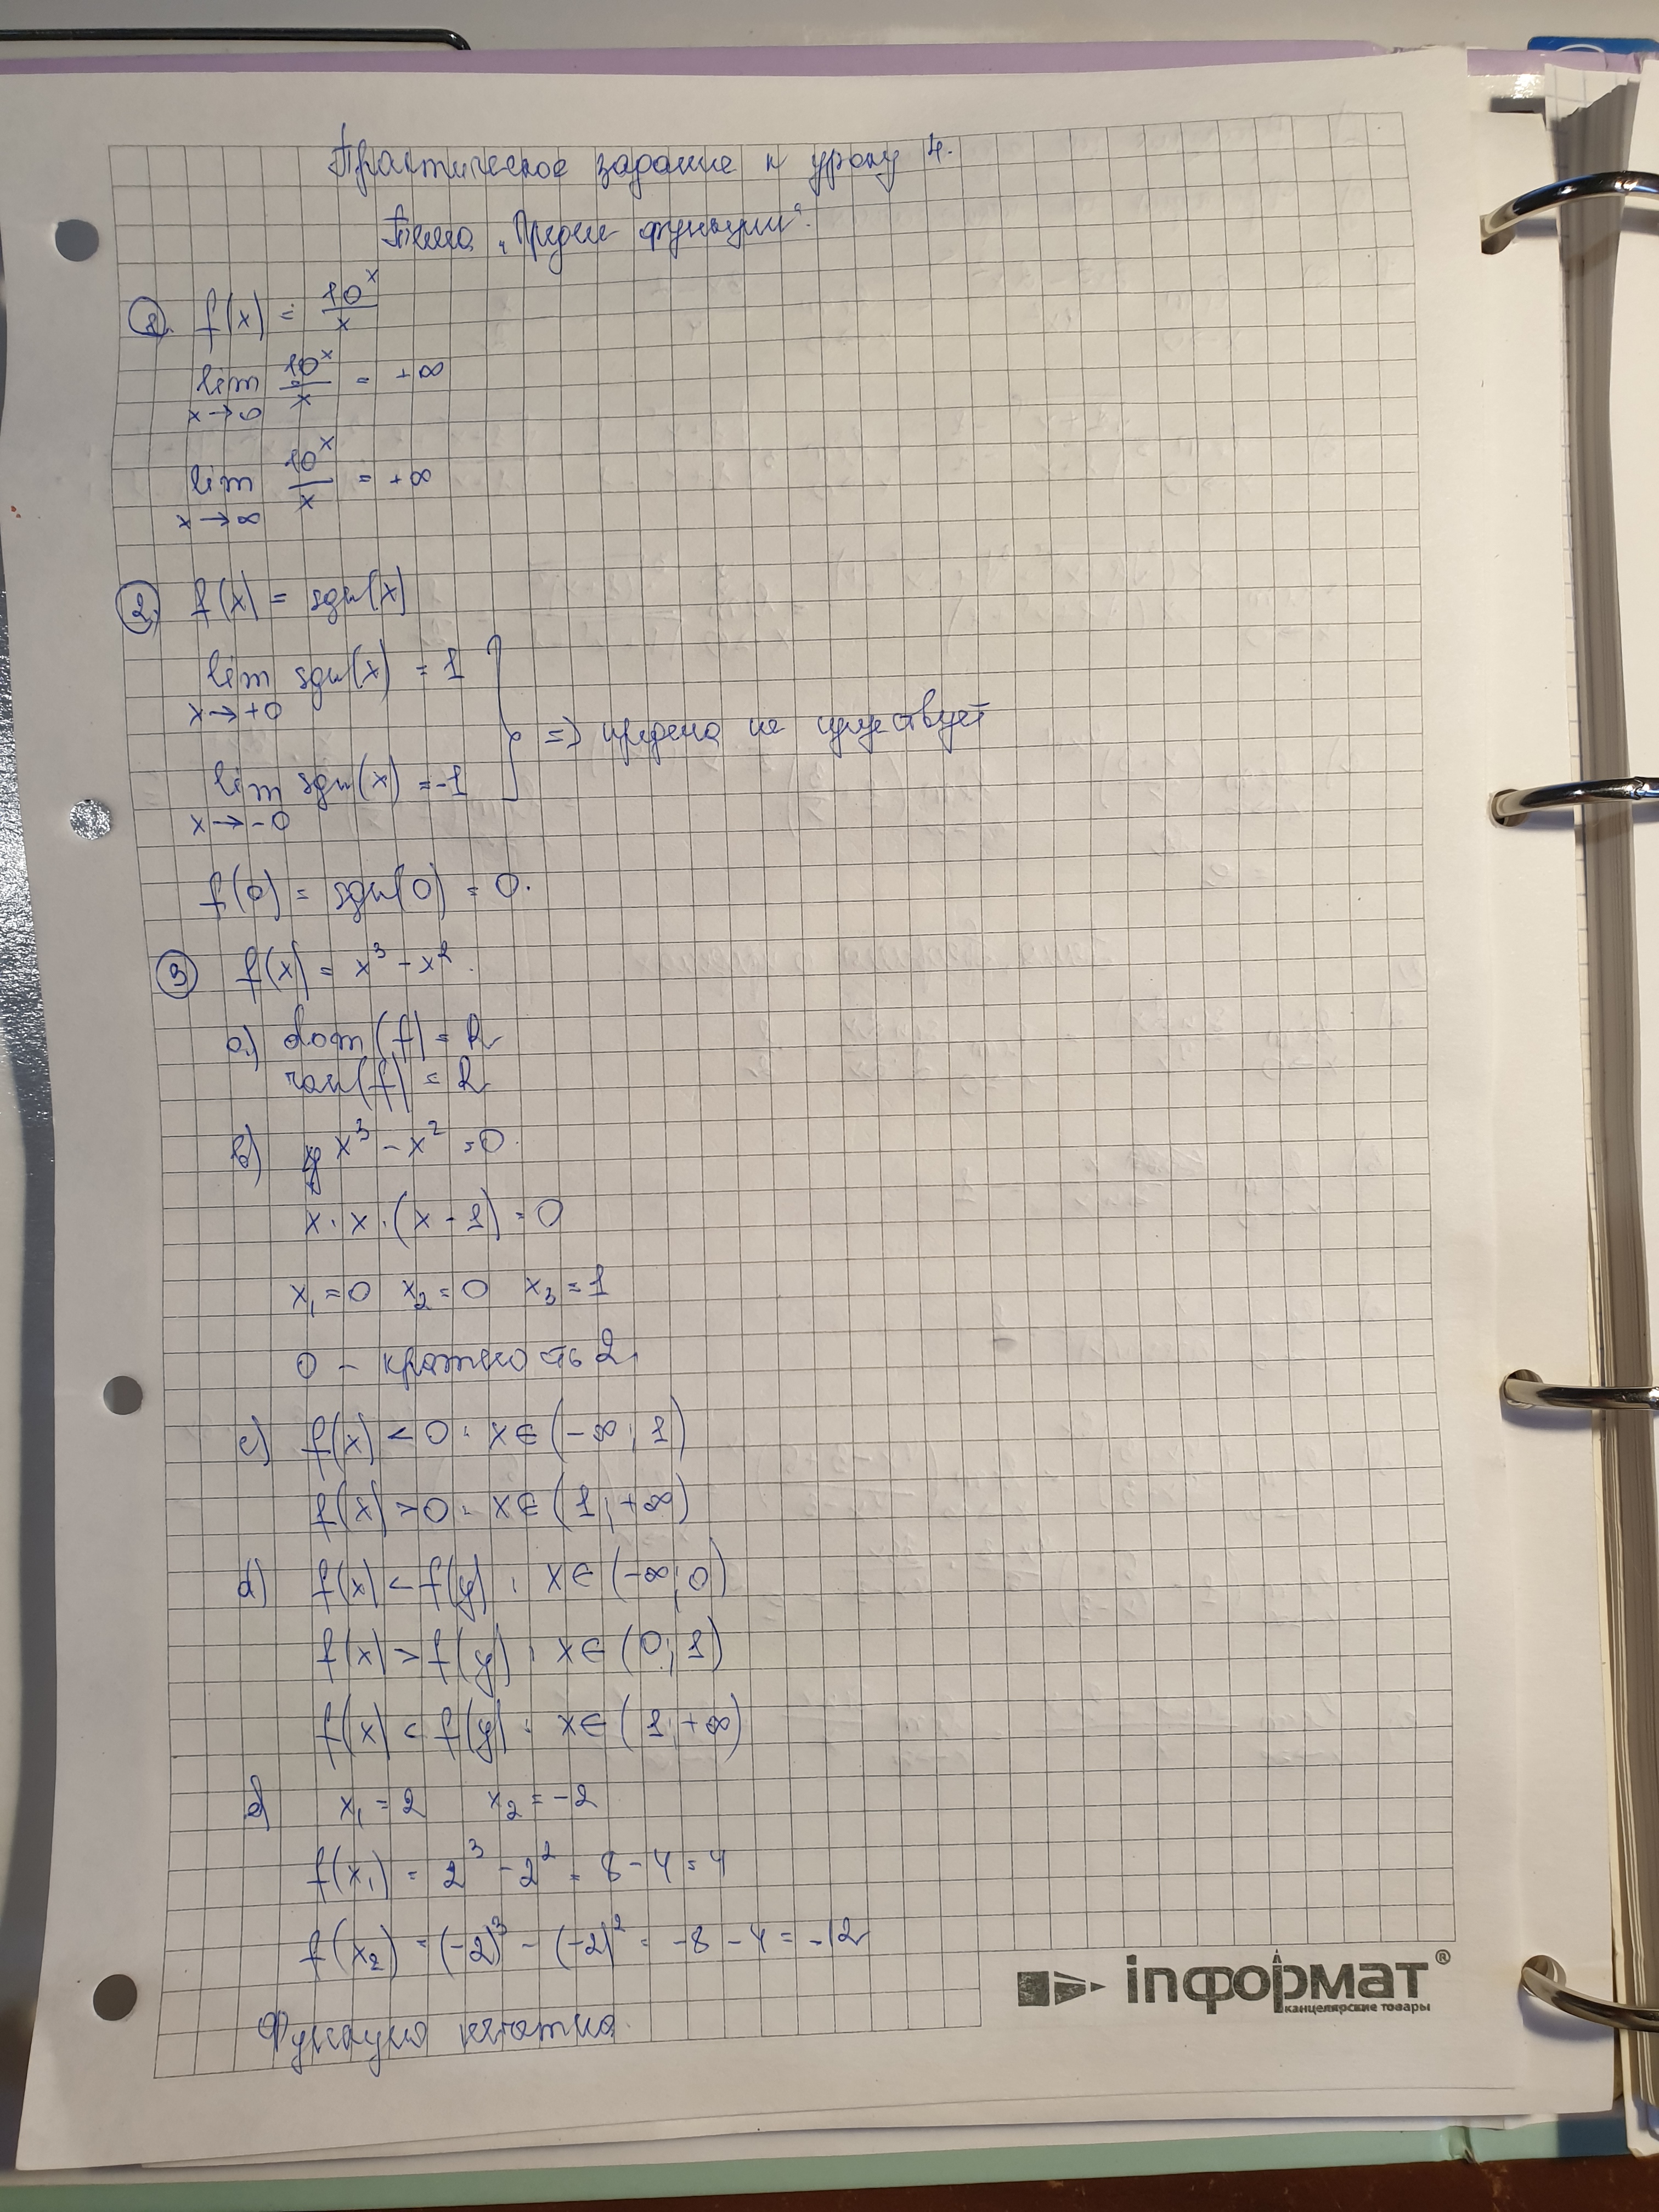 Практическое задание к уроку 4.
Тема „Предел функции“.
1. f(x) = 10^x / x
lim x→0 10^x / x = +∞
lim x→∞ 10^x / x = +∞
2. f(x) = sgn(x)
lim x→+0 sgn(x) = 1
=> предела не существует
lim x→-0 sgn(x) = -1
f(0) = sgn(0) = 0.
3 f(x) = x³ - x².
a) dom(f) = R
ran(f) = R
b) x³ - x² = 0.
x · x · (x - 1) = 0
x₁ = 0 x₂ = 0 x₃ = 1
0 - кратность 2
c) f(x) < 0 : x ∈ (-∞; 1)
f(x) > 0 : x ∈ (1; +∞)
d) f(x) < f(y) : x ∈ (-∞; 0)
f(x) > f(y) : x ∈ (0; 1)
f(x) < f(y) : x ∈ (1; +∞)
x₁ = 2 x₂ = -2
f(x₁) = 2³ - 2² = 8 - 4 = 4
f(x₂) = (-2)³ - (-2)² = -8 - 4 = -12
Функция
inформат®
канцелярские товары